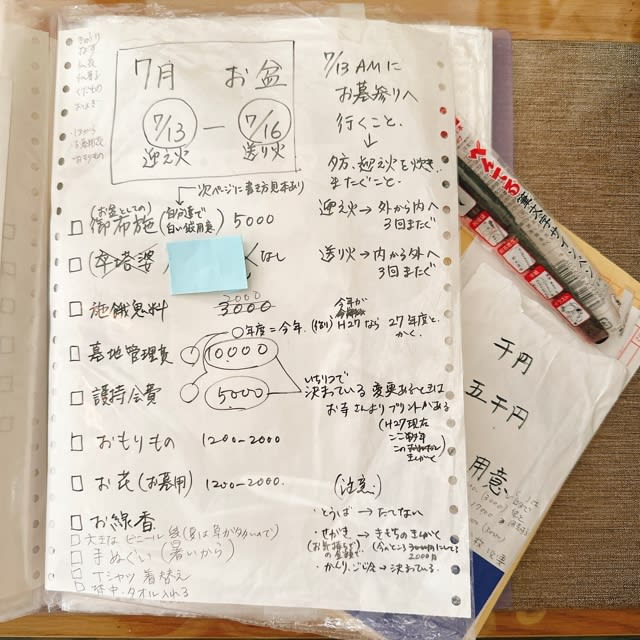 きゅうり
なす
仏花
和菓子
くだもの
7月 お盆
7/13 — 7/16
迎え火 送り火
7/13 AMに
お墓参りへ
行くこと。
↓
夕方、迎え火を炊き、
またぐこと。
迎え火→外から内へ
3回またぐ
送り火→内から外へ
3回またぐ
次ページに書き方見本あり
(お盆としての)
□ 御布施 (自分達で白い袋用意) 5000
□ (卒塔婆 なし
□ 施餓鬼料 3000
2000
○年度=今年。(例) H27なら 27年度と
かく。
今年が
□ 墓地管理費 ○ 10000
□ 護持会費 ○ 5000
いちりつで
決まっている 変更あるときは
お寺さんよりプリントがある
(H27現在
□ おもりもの 1200-2000
□ お花(お墓用) 1200-2000.
□ お線香
□ 大きな ビニール袋(夏は缶が多いので)
□ 手ぬぐい(暑いから)
□ Tシャツ着替え
□ 背中・タオル入れる
(注意。)
・とうば→たてない
・せがき→きもちのきんがく
(お気持ちの金額で)
2000円
・かんり、ごじ会→決まっている。
千円
五千円
用意
太文字サインペン